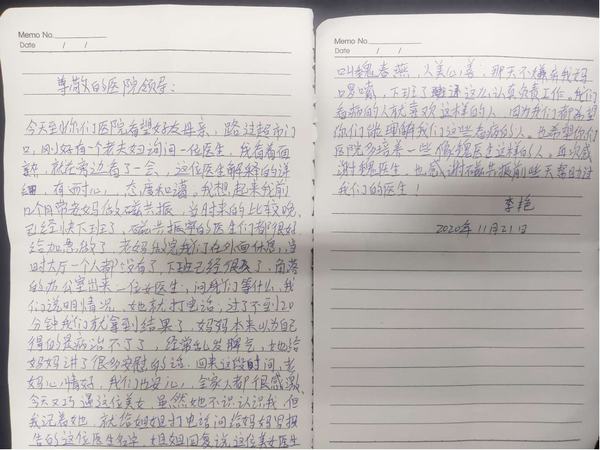 Memo No.
Date / /
尊敬的医院领导：
今天到你们医院看望好友母亲，路过超市门
口，刚好有个老夫妇询问一位医生，我看着面
熟，就在旁边看了一会，这位医生解释的详
细，有耐心，态度和蔼，我想起来我前
几个月带老妈做磁共振，当时来的比较晚，
已经快下班了，磁共振室的医生们都很好
给加急做了，老妈做完我们在外面休息，当
时大厅一个人都没有了，下班已经很久了，角落
的办公室出来一位女医生，问我们等什么，我
们说明情况，她就打电话，过了不到20
分钟我们就拿到结果了，妈妈本来以为自己
得的是病治不了了，经常乱发脾气，她给
妈妈讲了很多安慰的话，回来这段时间，老
妈心情好，我们也安心，全家人都很感激，
今天又巧遇这位美女，虽然她不认识我，但
我记着她，就给姐姐打电话问给妈妈冒报
告的这位医生名字，姐姐回复说这位美女医生
Memo No.
Date / /
叫魏春燕，人美心善，那天不嫌弃我妈
唠嗑，下班了还这么认真负责工作，我们
看病的人就喜欢这样的人，因为我们都希望
你们能理解我们这些看病的人，也希望你们
医院多培养一些像魏医生这样的人，再次感
谢魏医生，也感谢磁共振前些天帮助过
我们的医生！
李艳
2020年11月21日